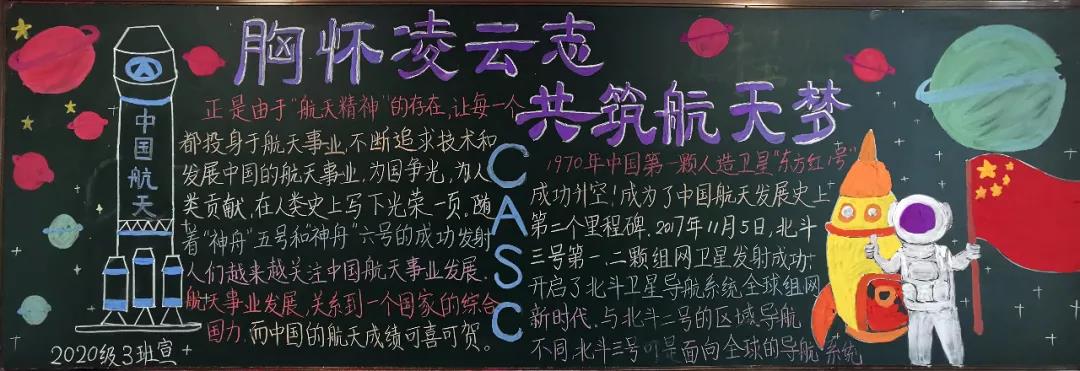 胸怀凌云志
共筑航天梦
中国航天
正是由于"航天精神"的存在,让每一个
都投身于航天事业,不断追求技术和
发展中国的航天事业,为国争光,为人
类贡献,在人类史上写下光荣一页,随
着"神舟"五号和神舟"六号的成功发射
人们越来越关注中国航天事业发展.
航天事业发展,关系到一个国家的综合
国力,而中国的航天成绩可喜可贺。
CASC
1970年中国第一颗人造卫星"东方红1号"
成功升空!成为了中国航天发展史上
第二个里程碑.2017年11月5日,北斗
三号第一.二颗组网卫星发射成功,
开启了北斗卫星导航系统全球组网
新时代.与北斗二号的区域导航
不同,北斗三号 是面向全球的导航系统
2020级3班宣